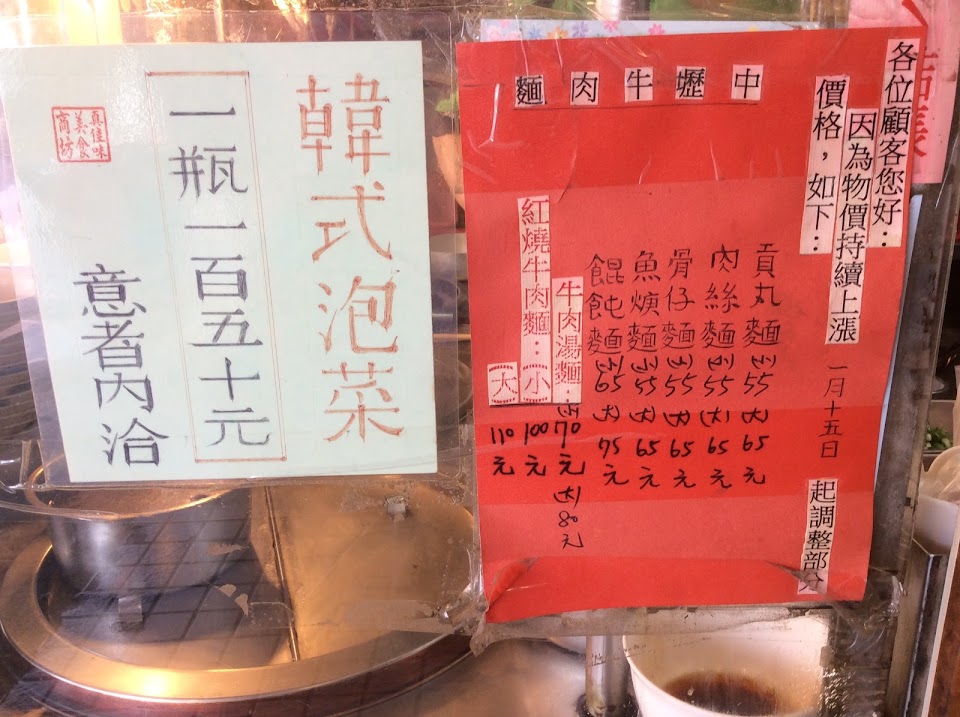 韓式泡菜
一瓶一百五十元
意者內洽
真佳味
美食
商坊
中壢牛肉麵
各位顧客您好：
因為物價持續上漲
價格，如下：
一月十五日
起調整部分
貢丸麵 小55 大65元
肉絲麵 小55 大65元
骨仔麵 小55 大65元
魚焿麵 小55 大65元
餛飩麵 小65 大75元
牛肉湯麵：小70元 大80元
紅燒牛肉麵：小 100元
大 110元